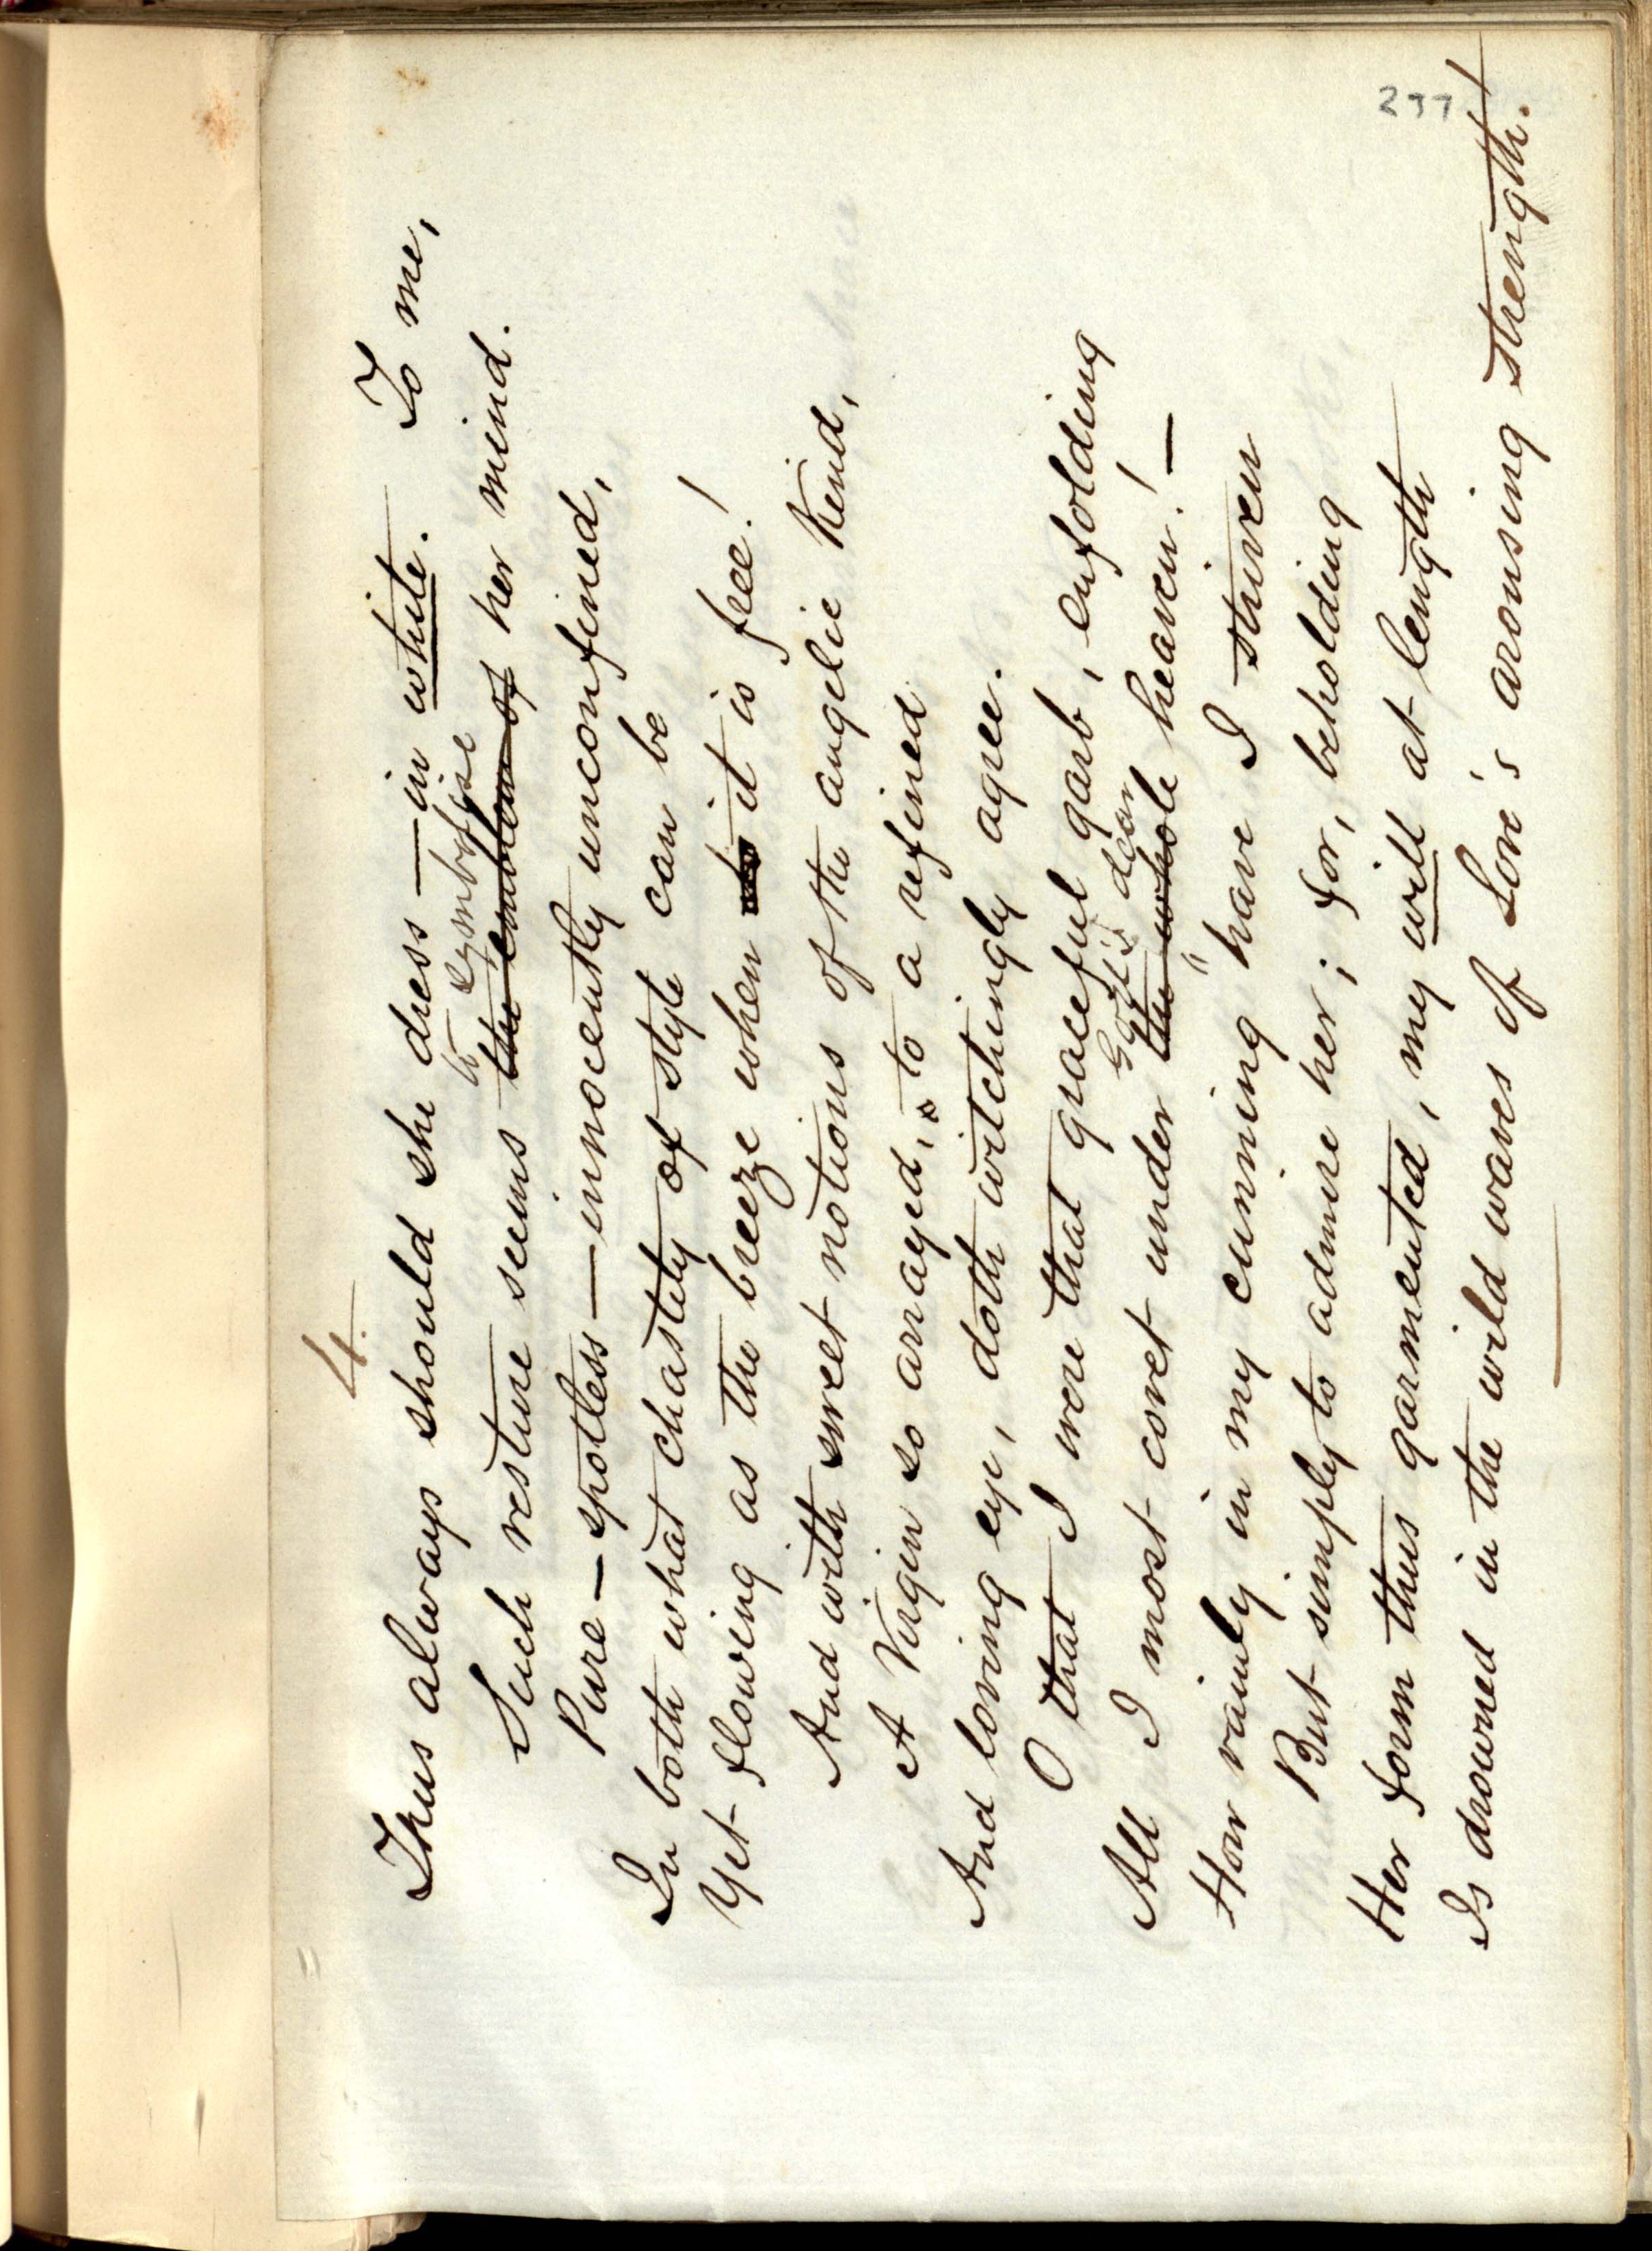 4.
Thus always should she dress — in white. To me,
to symbolise
Such vesture seems the emblem of her mind.
Pure — spotless — innocently unconfined,
In both what chastity of style can be
Yet flowing as the breeze when it is free!
And with sweet notions of the angelic kind,
A Virgin so arrayed, to a refined
And loving eye, doth witchingly agree.
O that I were that graceful garb, enfolding
God's dear
All I most covet under the whole heaven! —
How vainly in my cunning have I striven
But simply to admire her; for, beholding
Her form thus garmented, my will at length
Is drowned in the wild waves of Love's arousing strength!
277